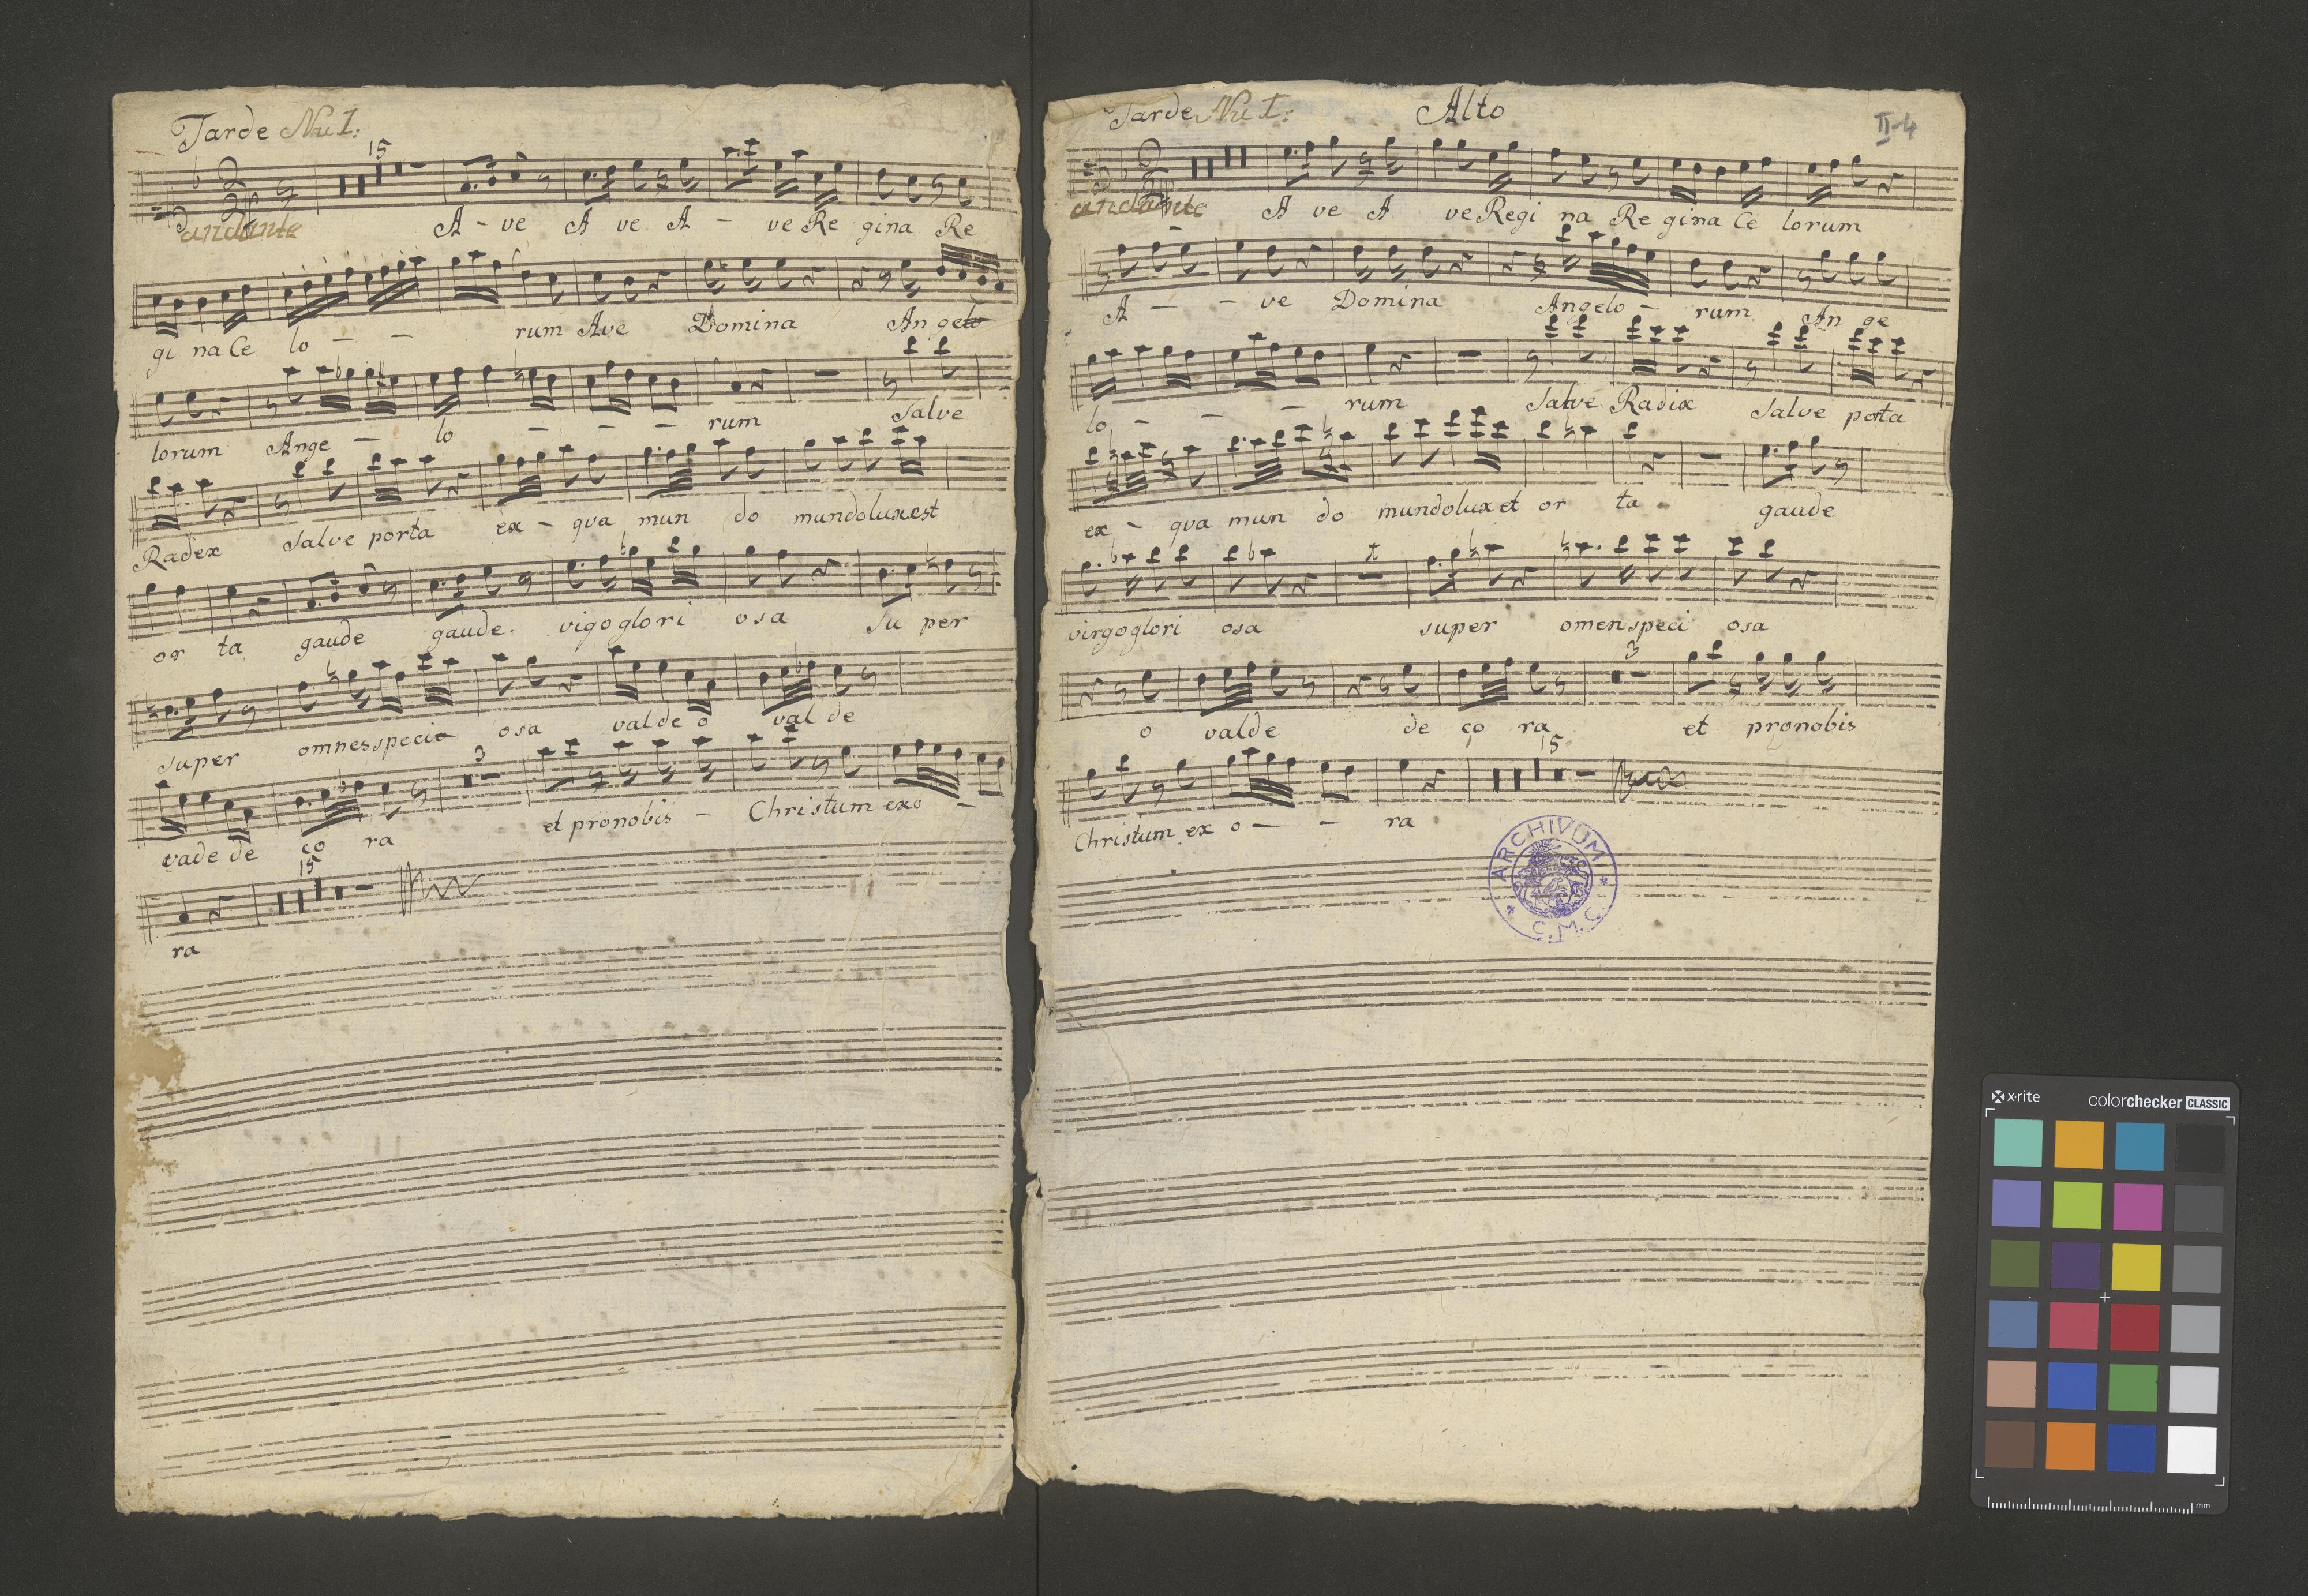 Tarde Nu I:
15
andante
A - ve A ve A - ve Re gina Re
gi na Ce lo - - rum Ave Domina An gelo
lorum Ange - lo - - - rum Salve
Radex Salve porta ex - qua mun do mundo lux est
or ta gaude gaude. vigo glori osa Su per
super omnes specio osa valde o val de
3
vade de co ra et pronobis - Christum exo -
15
ra
Tarde Nu I: Alto
II-4
andante
A ve A ve Regi na Re gina Ce lorum
A - - ve Domina Angelo - rum An ge
lo - - - rum Salve Radix Salve porta
ex - qua mun do mundo lux et or ta gaude
virgo glori osa super omen speci osa
3
o valde de co ra et pronobis
15
Christum ex o - - ra
ARCHIVUM
* C.M.C. *
x·rite colorchecker CLASSIC
mm